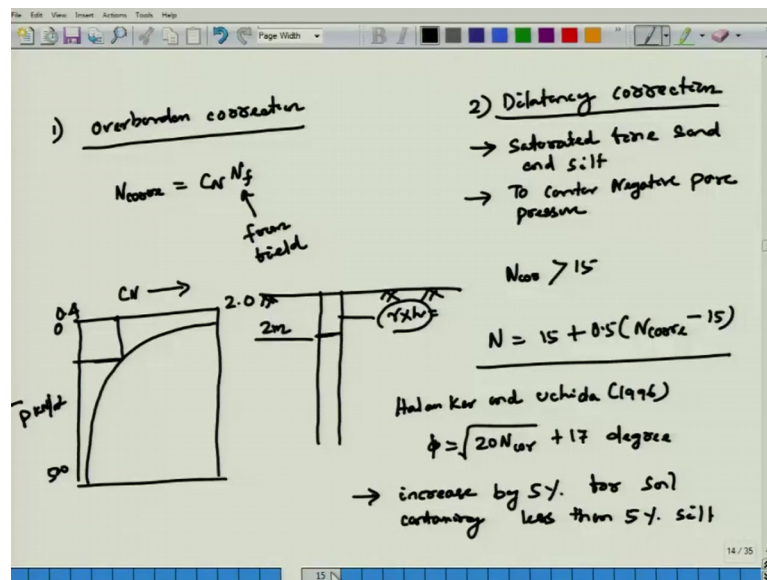 File Edit View Insert Actions Tools Help
Page Width
1) Overburden correction
N corr = CN Nf
from
field
CN →
0.4
0
2.0
2m
γxh
50
2) Dilatency correction
→ Saturated fine sand
and silt
→ To counter Negative pore
pressure
Ncor > 15
N = 15 + 0.5 (Ncorr - 15)
Hatan Kar and Uchida (1996)
φ = √20 Ncor + 17 degree
→ increase by 5%. for soil
containing less than 5%. silt
14 / 35
15